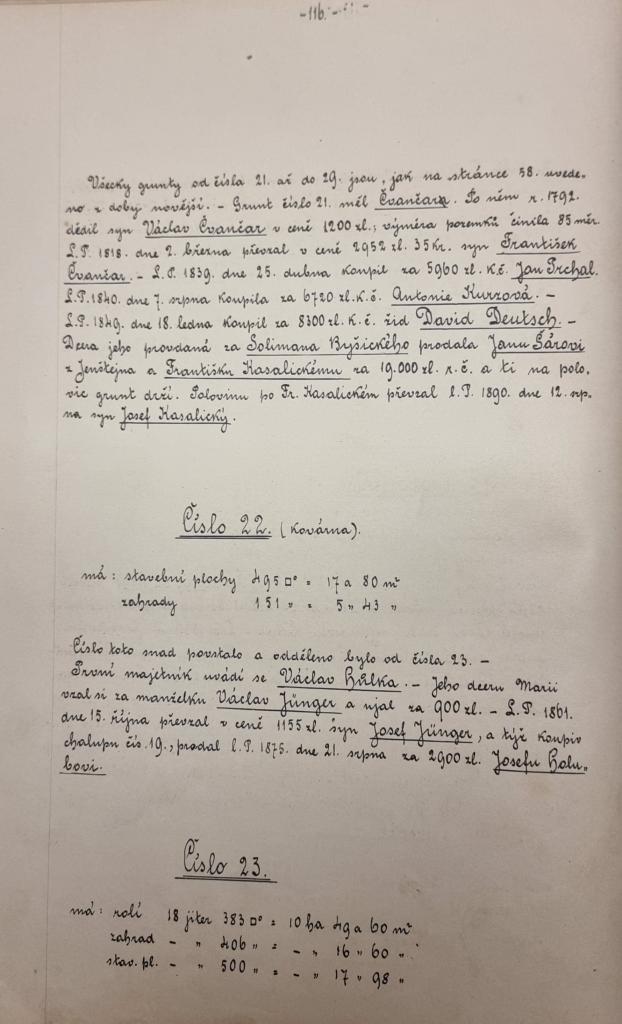 -116.-
Všecky grunty od čísla 21. až do 29. jsou, jak na stránce 58. uvede-
no z doby novější. - Grunt číslo 21. měl Čvančara. Po něm r. 1792.
dědil syn Václav Čvančar v ceně 1200 zl.; výměra pozemků činila 85 měr.
L.P. 1818. dne 2. března převzal v ceně 2952 zl. 35 kr. syn František
Čvančar. - L.P. 1839. dne 25. dubna koupil za 5960 zl. k.č. Jan Prchal.
L.P. 1840. dne 7. srpna koupila za 6720 zl. k.č. Antonie Kurzová. -
L.P. 1849. dne 18. ledna koupil za 8300 zl. k.č. žid David Deutsch. -
Dcera jeho provdaná za Solimana Byšického prodala Janu Šárovi
z Jenštejna a Františku Kasalickému za 19.000 zl. r.č. a ti na polo,
vic grunt drží. Polovinu po Fr. Kasalickém převzal l.P. 1890. dne 12. srp-
na syn Josef Kasalický.
Číslo 22. (kovárna).
má: stavební plochy 495 □° = 17 a 80 m²
zahrady 151 " = 5 " 43 "
Číslo toto snad povstalo a odděleno bylo od čísla 23. -
První majetník uvádí se Václav Hůlka. - Jeho dceru Marii
vzal si za manželku Václav Jünger a ujal za 900 zl. - L.P. 1861.
dne 15. října převzal v ceně 1155 zl. syn Josef Jünger, a týž koupiv
chalupu čís. 19., prodal l.P. 1875. dne 21. srpna za 2900 zl. Josefu Holu„
bovi.
Číslo 23.
má: rolí 18 jiter 383 □° = 10 ha 49 a 60 m²
zahrad - " 406 " = - " 16 " 60 "
stav. pl. - " 500 " = - " 17 " 98 "